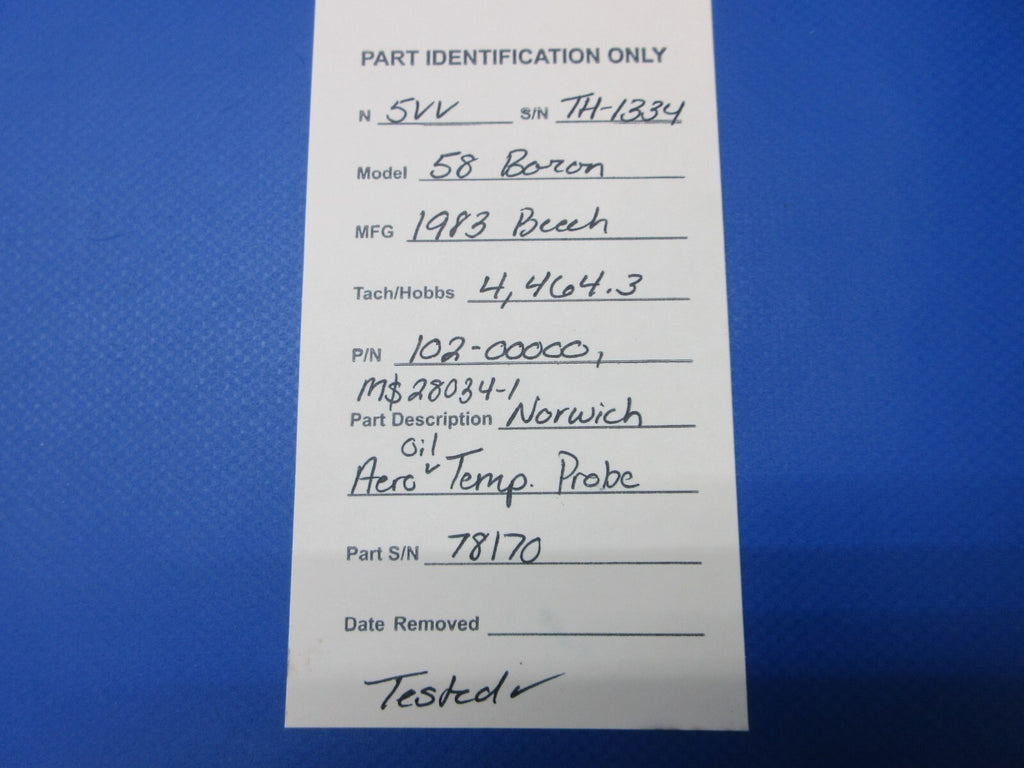 PART IDENTIFICATION ONLY
N 5VV S/N TH-1334
Model 58 Baron
MFG 1983 Beech
Tach/Hobbs 4,464.3
P/N 102-00000,
M$28034-1
Part Description Norwich
Aero Oil Temp. Probe
Part S/N 78170
Date Removed
Tested ✓